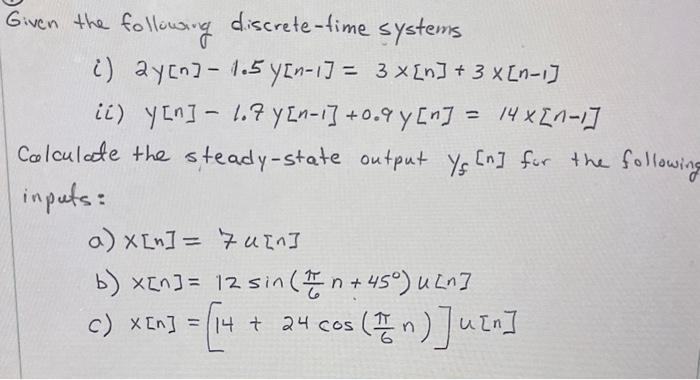 Given the following discrete-time systems
i) 2y[n] - 1.5 y[n-1] = 3 x[n] + 3 x[n-1]
ii) y[n] - 1.7 y[n-1] + 0.9 y[n] = 14 x[n-1]
Calculate the steady-state output ys[n] for the following
inputs:
a) x[n] = 7 u[n]
b) x[n] = 12 sin(π/6 n + 45°) u[n]
c) x[n] = [14 + 24 cos(π/6 n)] u[n]